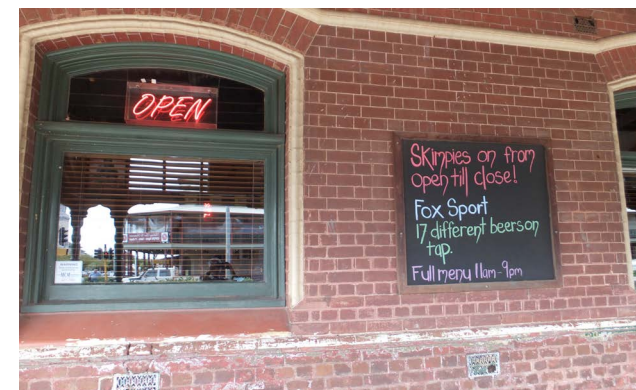 OPEN
Skimpies on from
open till close!
Fox Sport
17 different beers on
tap.
Full menu 11am-9pm